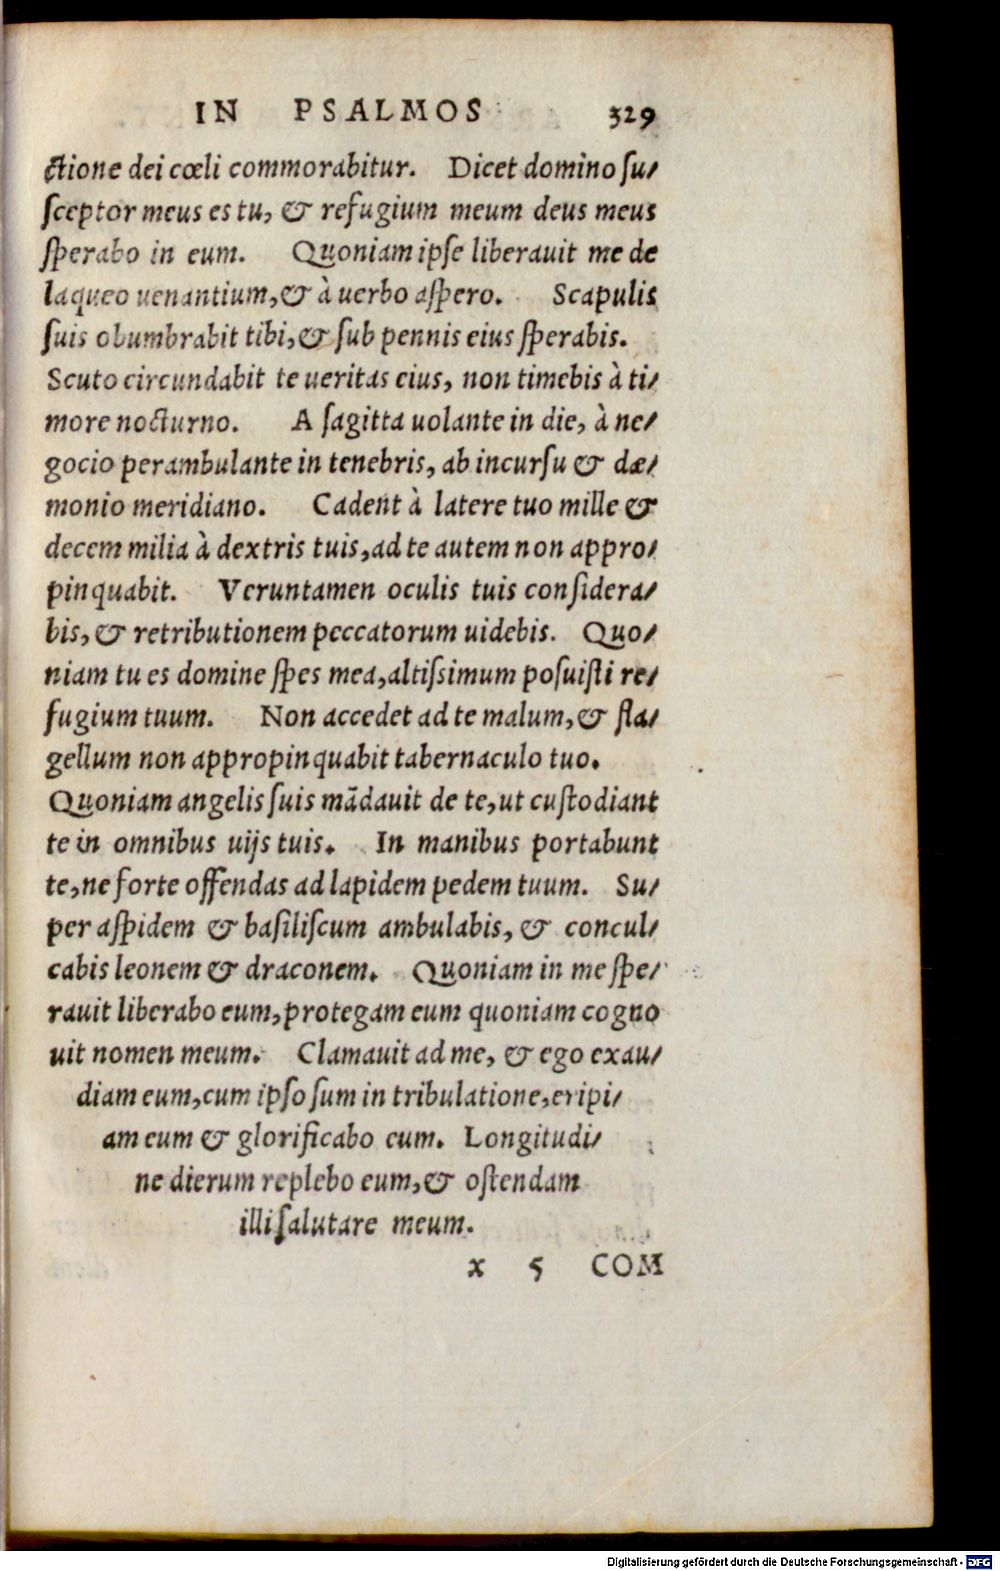 IN PSALMOS 329
ctione dei cœli commorabitur. Dicet domino su/
sceptor meus es tu, & refugium meum deus meus
sperabo in eum. Quoniam ipse liberauit me de
laqueo uenantium, & à uerbo aspero. Scapulis
suis obumbrabit tibi, & sub pennis eius sperabis.
Scuto circundabit te ueritas eius, non timebis à ti/
more nocturno. A sagitta uolante in die, à ne/
gocio perambulante in tenebris, ab incursu & dæ/
monio meridiano. Cadent à latere tuo mille &
decem milia à dextris tuis, ad te autem non appro/
pinquabit. Veruntamen oculis tuis considera/
bis, & retributionem peccatorum uidebis. Quo/
niam tu es domine spes mea, altissimum posuisti re/
fugium tuum. Non accedet ad te malum, & fla/
gellum non appropinquabit tabernaculo tuo.
Quoniam angelis suis mãdauit de te, ut custodiant
te in omnibus uijs tuis. In manibus portabunt
te, ne forte offendas ad lapidem pedem tuum. Su/
per aspidem & basiliscum ambulabis, & concul/
cabis leonem & draconem. Quoniam in me spe/
rauit liberabo eum, protegam eum quoniam cogno
uit nomen meum. Clamauit ad me, & ego exau/
diam eum, cum ipso sum in tribulatione, eripi/
am eum & glorificabo eum. Longitudi/
ne dierum replebo eum, & ostendam
illi salutare meum.
x 5 COM
Digitalisierung gefördert durch die Deutsche Forschungsgemeinschaft - DFG